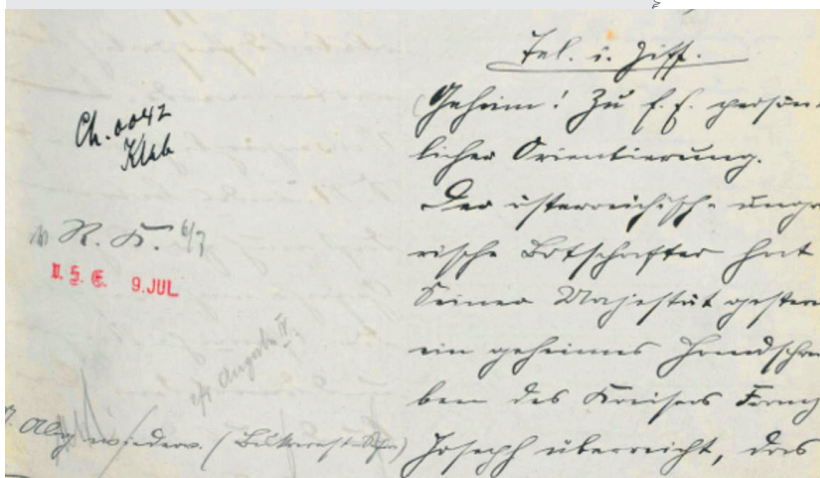 Tel. i. Ziff.
Geheim! Zu f. E. persön-
licher Orientierung.
Der österreichisch-unga-
rische Botschafter hat
Seiner Majestät gestern
ein geheimes Handschrei-
ben des Kaisers Franz
Joseph überreicht, das
Ch. 0042
Klab
R. K. 6/7
9. JUL
cfr. Angabe IV.